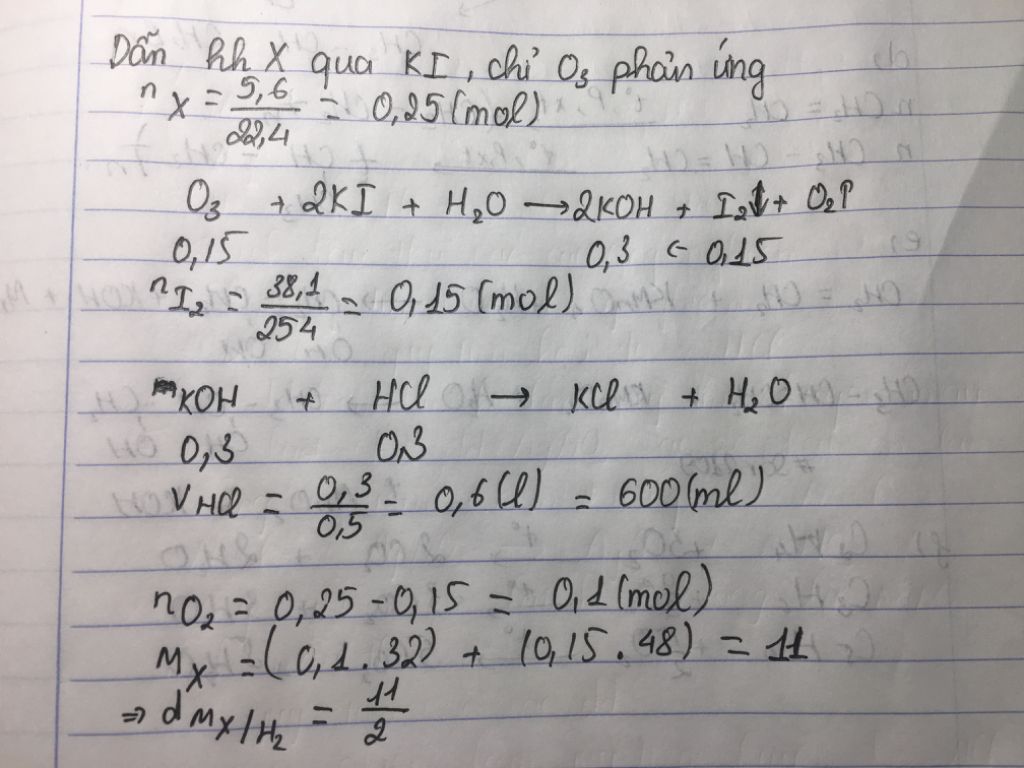 Dẫn hh X qua KI, chỉ O₃ phản ứng
n X = 5,6/22,4 = 0,25 (mol)
O₃ + 2KI + H₂O → 2KOH + I₂↓ + O₂↑
0,15 0,3 ← 0,15
n I₂ = 38,1/254 = 0,15 (mol)
KOH + HCl → KCl + H₂O
0,3 0,3
V HCl = 0,3/0,5 = 0,6 (l) = 600 (ml)
n O₂ = 0,25 - 0,15 = 0,1 (mol)
M X = (0,1 . 32) + (0,15 . 48) = 11
⇒ d M X/H₂ = 11/2